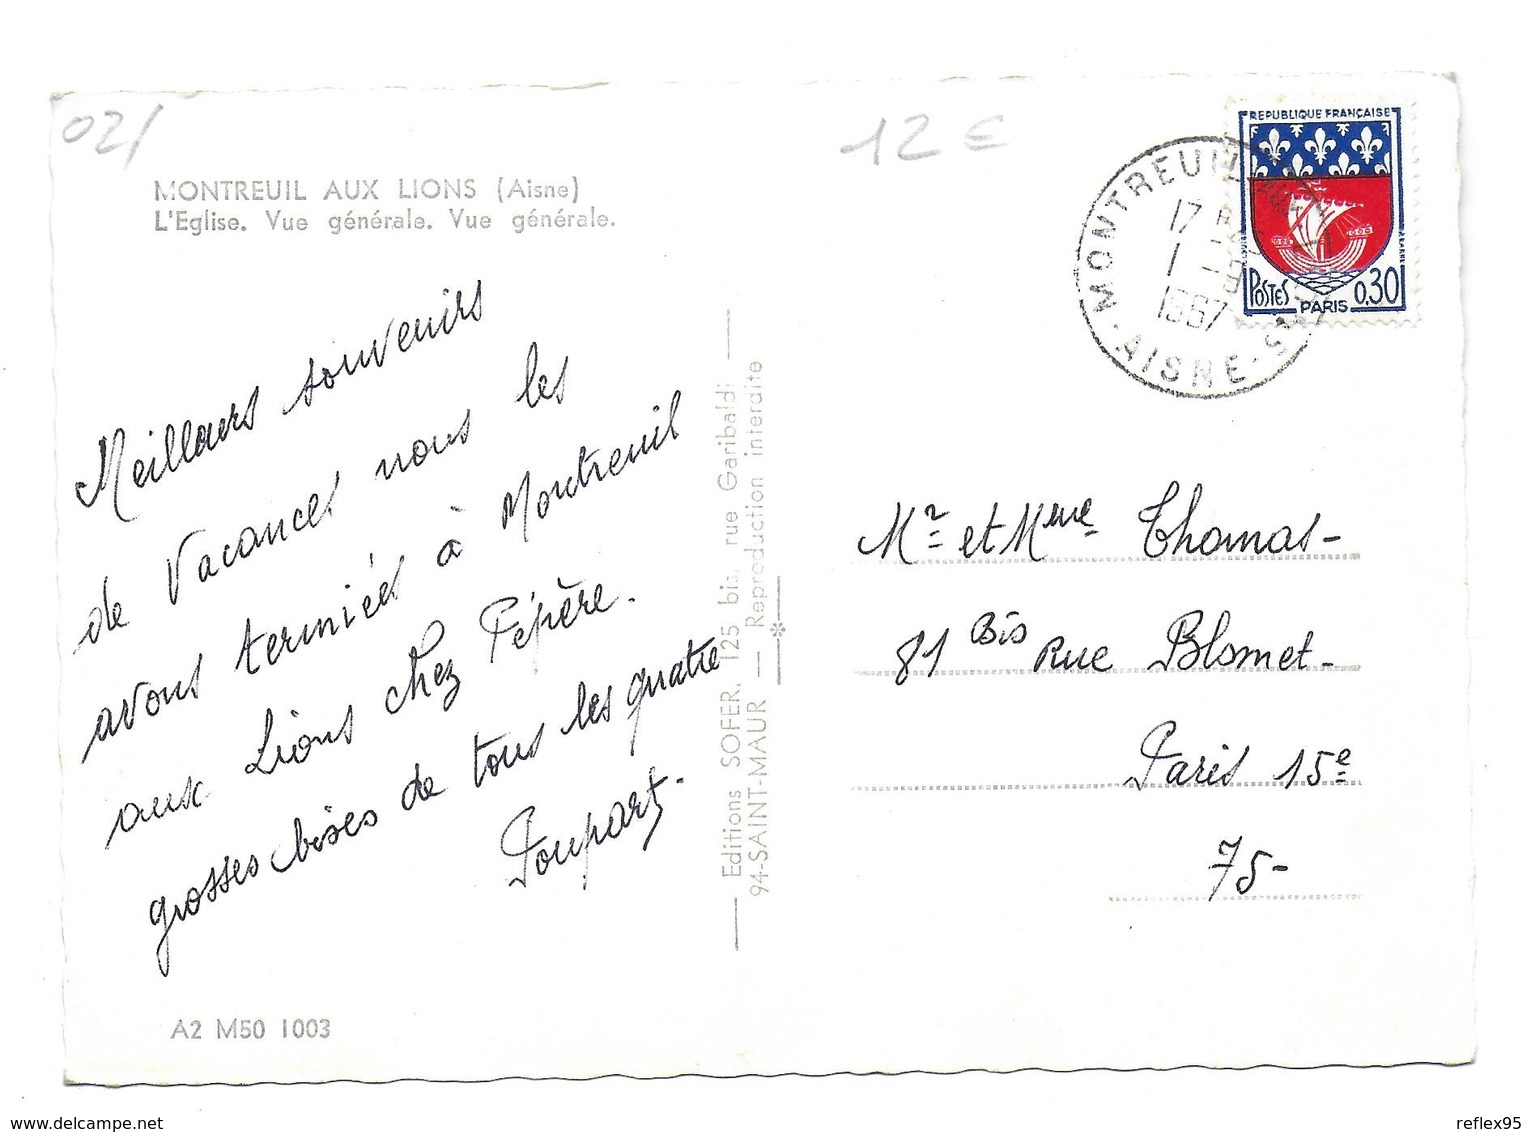 02/
12 €
MONTREUIL AUX LIONS (Aisne)
L'Eglise. Vue générale. Vue générale.
Meilleurs souvenirs
de Vacances nous les
avons terminées à Montreuil
aux Lions chez Pépère.
grosses bises de tous les quatre
Poupart.
A2 M50 1003
Editions SOFER, 125 bis, rue Garibaldi
94-SAINT-MAUR — Reproduction interdite
REPUBLIQUE FRANÇAISE
POSTES 0,30
PARIS
MONTREUIL
17
1 - 9
1967
AISNE
Mr et Mme Thomas-
81 Bis Rue Blomet-
Paris 15e
75-
www.delcampe.net
reflex95